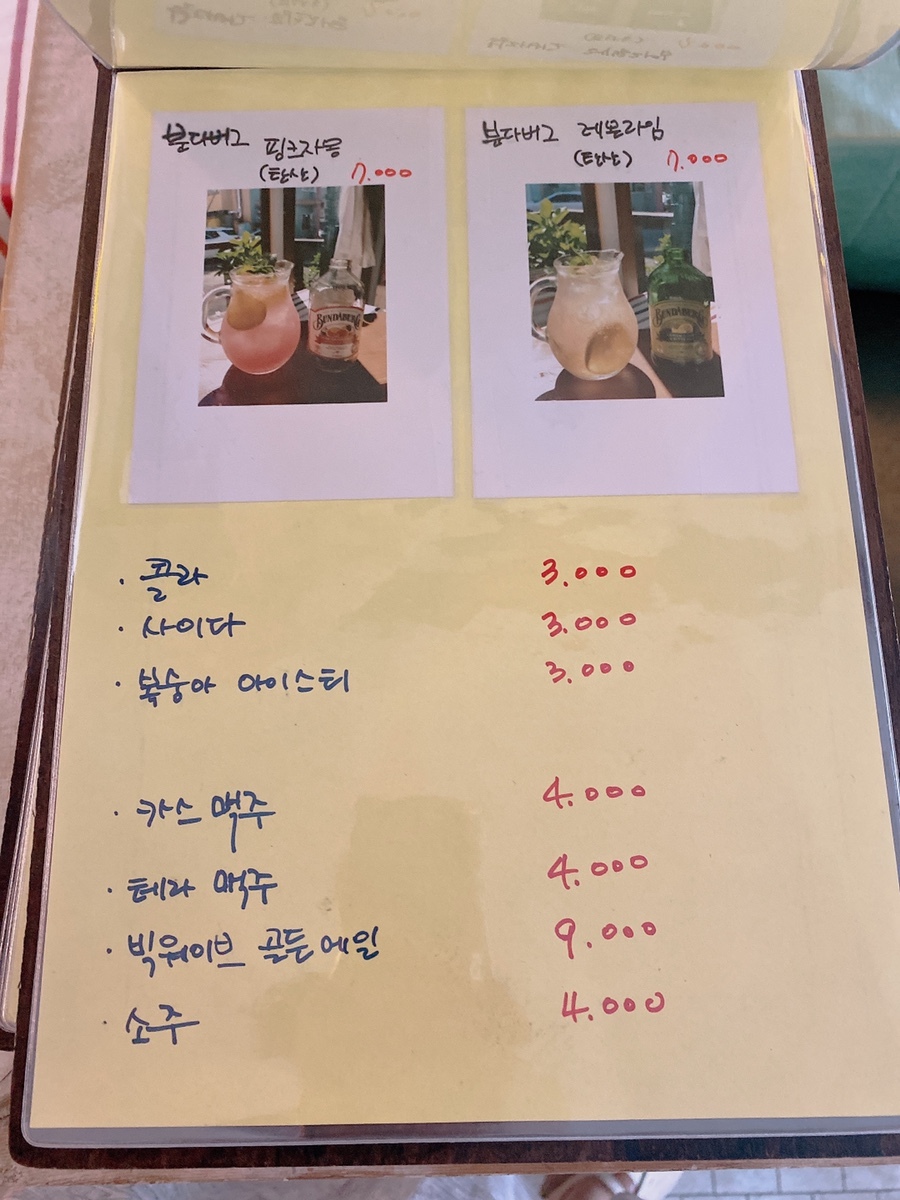 분다버그 핑크자몽
(탄산) 7.000
분다버그 레몬라임
(탄산) 7.000
BUNDABERG
BUNDABERG
· 콜라 3.000
· 사이다 3.000
· 복숭아 아이스티 3.000
· 카스 맥주 4.000
· 테라 맥주 4.000
· 빅웨이브 골든에일 9.000
· 소주 4.000